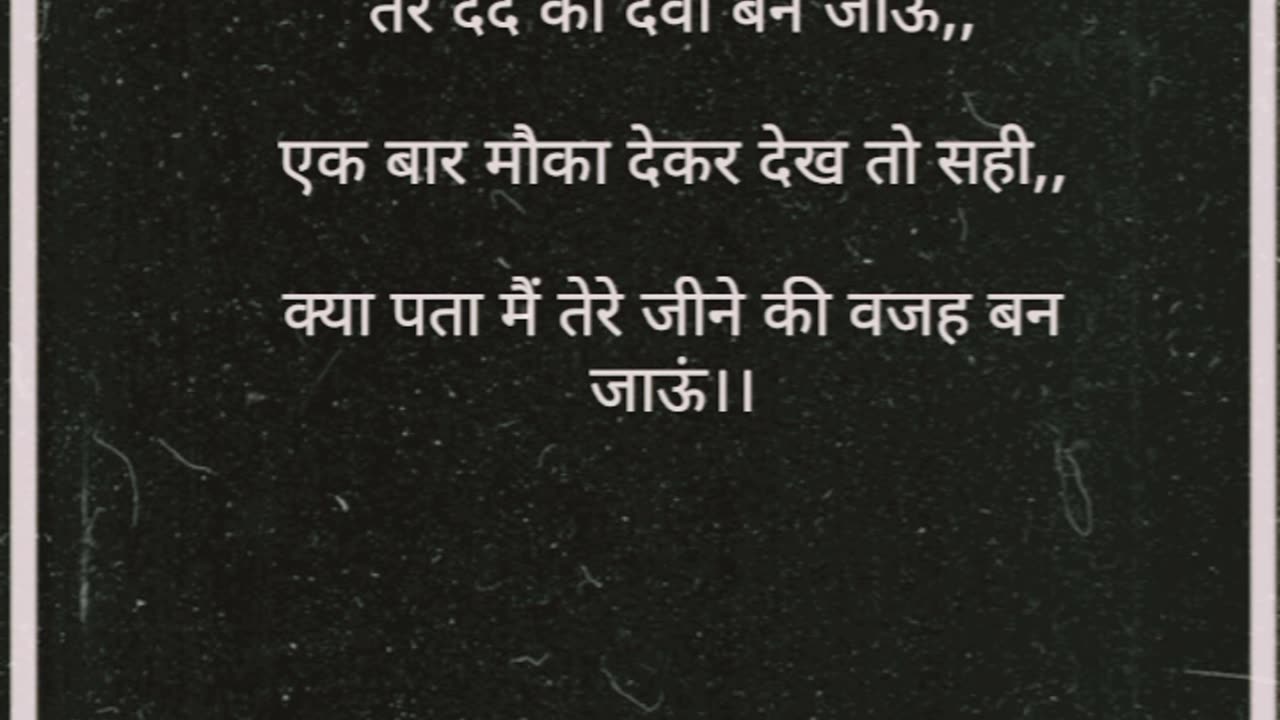 तेरे दर्द की दवा बन जाऊं,,
एक बार मौका देकर देख तो सही,,
क्या पता मैं तेरे जीने की वजह बन
जाऊं।।